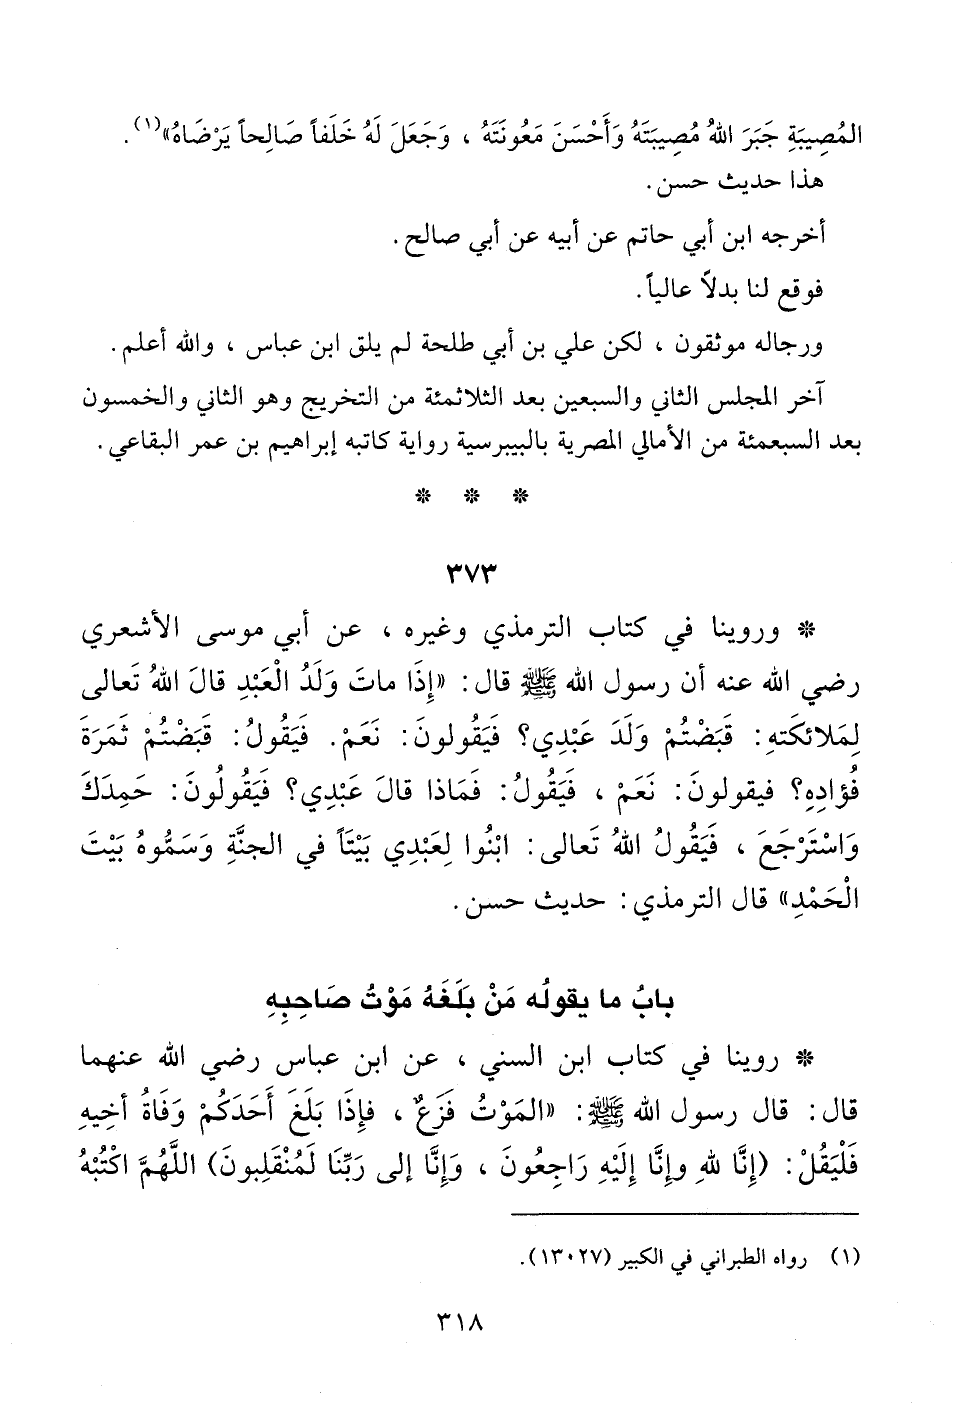 المُصِيبَةِ جَبَرَ اللهُ مُصِيبَتَهُ وَأَحْسَنَ مَعُونَتَهُ ، وَجَعَلَ لَهُ خَلَفاً صَالِحاً يَرْضَاهُ»(١).
هذا حديث حسن.
أخرجه ابن أبي حاتم عن أبيه عن أبي صالح.
فوقع لنا بدلاً عالياً.
ورجاله موثقون ، لكن علي بن أبي طلحة لم يلق ابن عباس ، والله أعلم.
آخر المجلس الثاني والسبعين بعد الثلاثمئة من التخريج وهو الثاني والخمسون
بعد السبعمئة من الأمالي المصرية بالبيبرسية رواية كاتبه إبراهيم بن عمر البقاعي.
* * *
٣٧٣
* وروينا في كتاب الترمذي وغيره ، عن أبي موسى الأشعري
رضي الله عنه أن رسول الله ﷺ قال: «إِذَا ماتَ وَلَدُ الْعَبْدِ قالَ اللهُ تَعالى
لِمَلائكَتهِ: قَبَضْتُمْ وَلَدَ عَبْدِي؟ فَيَقُولونَ: نَعَمْ. فَيَقُولُ: قَبَضْتُمْ ثَمَرَةَ
فُؤادِهِ؟ فيقولونَ: نَعَمْ ، فَيَقُولُ: فَمَاذا قالَ عَبْدِي؟ فَيَقُولُونَ: حَمِدَكَ
وَاسْتَرْجَعَ ، فَيَقُولُ اللهُ تَعالى: ابْنُوا لِعَبْدِي بَيْتَاً في الجنَّةِ وَسَمُّوهُ بَيْتَ
الْحَمْدِ» قال الترمذي: حديث حسن.
بابُ ما يقولُه مَنْ بَلَغَهُ مَوْتُ صَاحِبِهِ
* روينا في كتاب ابن السني ، عن ابن عباس رضي الله عنهما
قال: قال رسول الله ﷺ: «المَوْتُ فَزَعٌ ، فإِذَا بَلَغَ أَحَدَكُمْ وَفَاةُ أخِيهِ
فَلْيَقُلْ: (إِنَّا للهِ وإِنَّا إِلَيْهِ رَاجِعُونَ ، وَإِنَّا إلى رَبِّنَا لَمُنْقَلِبونَ) اللَّهُمَّ اكْتُبْهُ
(١) رواه الطبراني في الكبير (١٣٠٢٧).
٣١٨